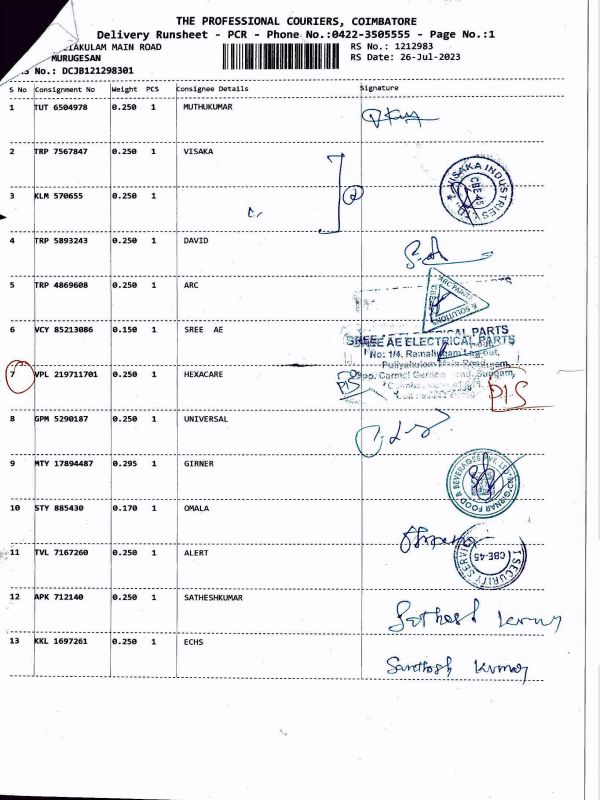 THE PROFESSIONAL COURIERS, COIMBATORE
Delivery Runsheet - PCR - Phone No.:0422-3505555 - Page No.:1
IAKULAM MAIN ROAD RS No.: 1212983
MURUGESAN RS Date: 26-Jul-2023
No.: DCJB121298301
S No Consignment No Weight PCS Consignee Details Signature
1 TUT 6504978 0.250 1 MUTHUKUMAR
2 TRP 7567847 0.250 1 VISAKA
VISAKA INDUSTRIES
CBE-45
3 KLM 570655 0.250 1
4 TRP 5893243 0.250 1 DAVID
5 TRP 4869608 0.250 1 ARC
ARC PAINTS & SOLUTIONS
6 VCY 85213086 0.150 1 SREE AE
SREE AE ELECTRICAL PARTS
No: 1/4, Ramalingam Layout,
7 VPL 219711701 0.250 1 HEXACARE
DIS
8 GPM 5290187 0.250 1 UNIVERSAL
9 MTY 17894487 0.295 1 GIRNER
GIRNAR FOOD & BEVERAGES PVT. LTD
10 STY 885430 0.170 1 OMALA
11 TVL 7167260 0.250 1 ALERT
SECURITY SERVICE
CBE-45
12 APK 712140 0.250 1 SATHESHKUMAR
Sathesh kumar
13 KKL 1697261 0.250 1 ECHS
Santhosh Kumar